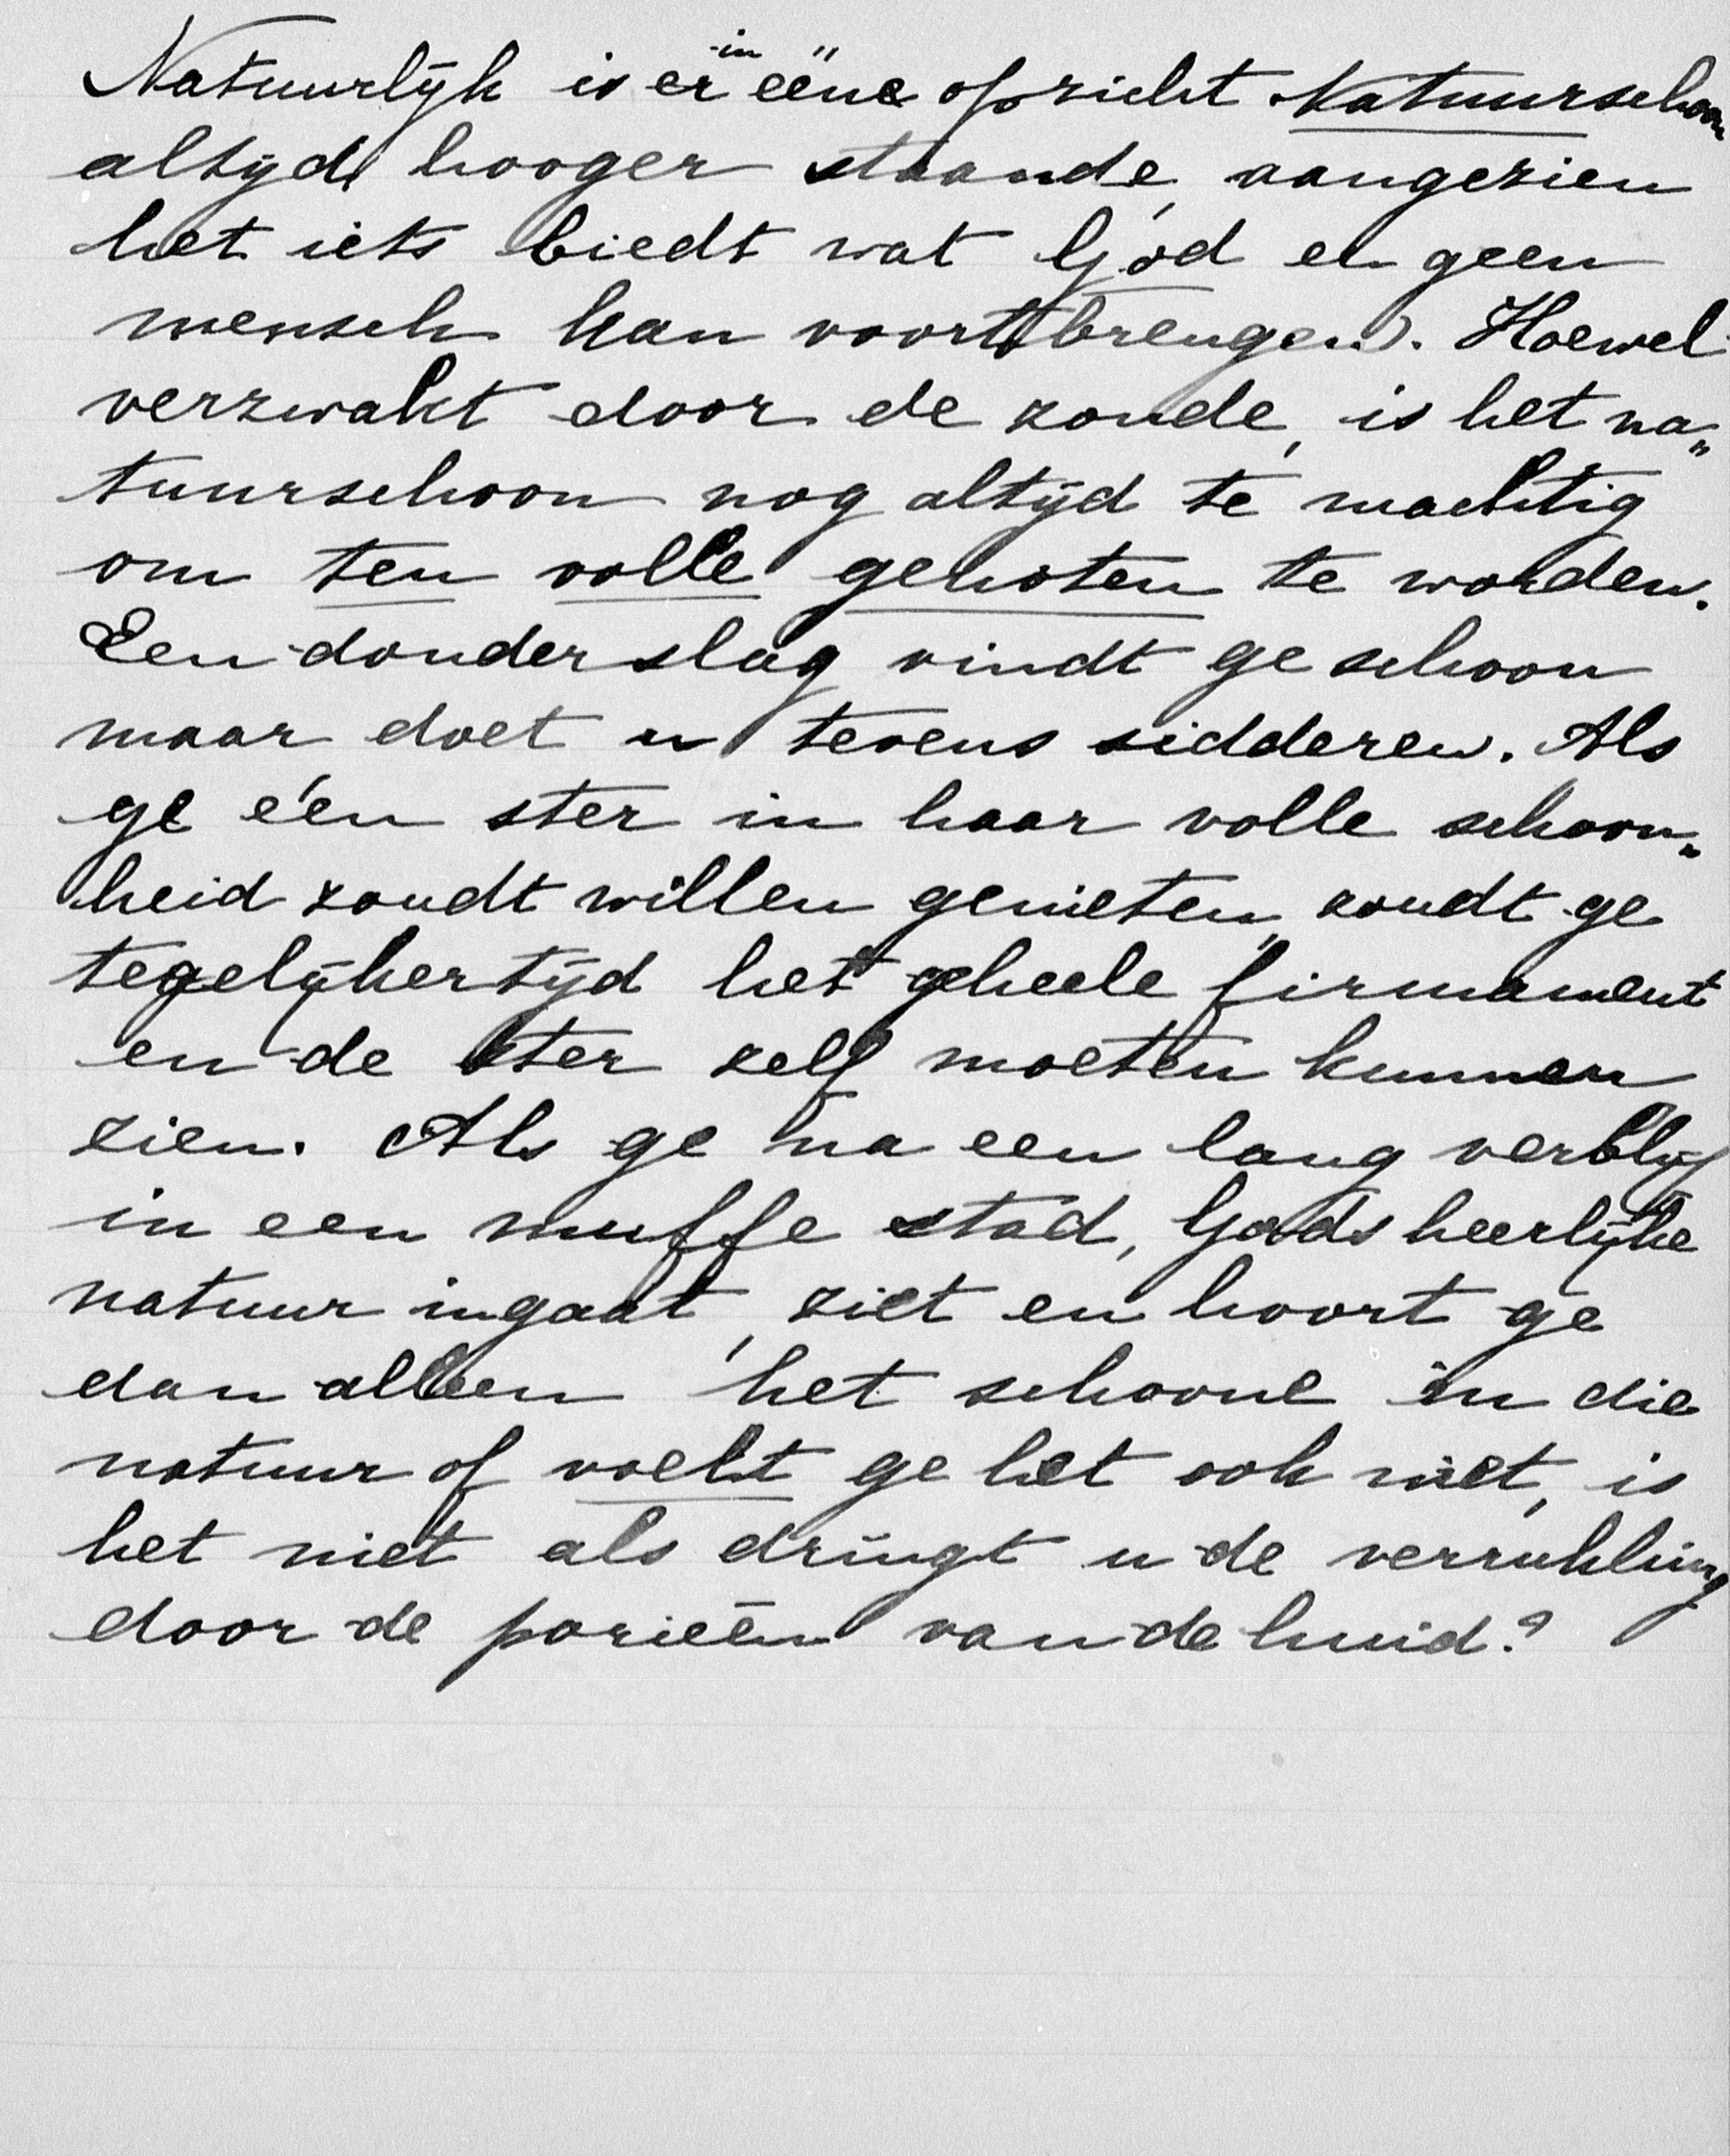 Natuurlijk is er in ééne opzicht Natuurschoon
altijd hooger staande, aangezien
het iets biedt wat God en geen
mensch kan voortbrengen. Hoewel
verzwakt door de zonde, is het na„
tuurschoon nog altijd te machtig
om ten volle genoten te worden.
Een donderslag vindt ge schoon
maar doet u tevens sidderen. Als
ge één ster in haar volle schoon„
heid zoudt willen genieten, zoudt ge
tegelijkertijd het geheele firmament
en de ster zelf moeten kunnen
zien. Als ge na een lang verblijf
in een muffe stad, Gods heerlijke
natuur ingaat, ziet en hoort ge
dan alleen het schoone in die
natuur of voelt ge het ook niet, is
het niet als dringt u de verrukking
door de poriëen van de huid?